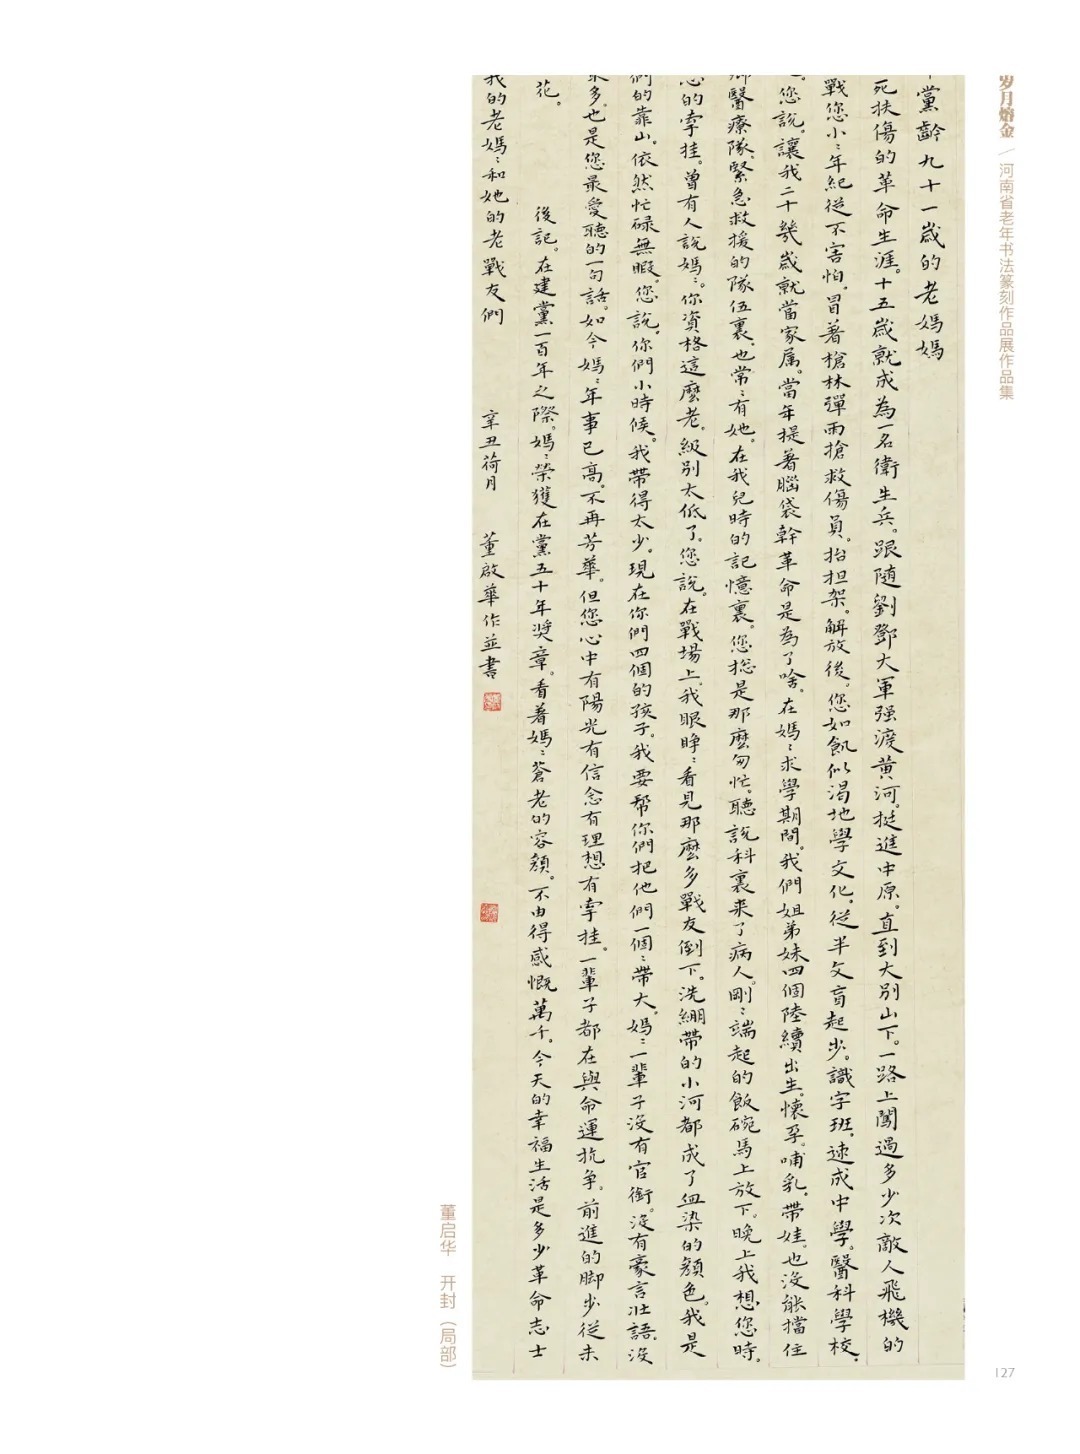 岁月熔金 / 河南省老年书法篆刻作品展作品集
黨齡九十一歲的老媽媽
死扶傷的革命生涯。十五歲就成為一名衛生兵。跟随劉鄧大軍强渡黄河。挺進中原。直到大别山下。一路上闖過多少次敵人飛機的
戰您小〻年紀從不害怕。冒著槍林彈雨搶救傷員。抬担架。解放後。您如飢似渴地學文化。從半文盲起步。識字班。速成中學。醫科學校。
您說。讓我二十幾歲就當家属。當年提著腦袋幹革命是為了啥。在媽〻求學期間。我們姐弟妹四個陸續出生。懷孕。哺乳。帶娃。也没能擋住
醫療隊。緊急救援的隊伍裏。也常〻有她。在我兒時的記憶裏。您総是那麼匆忙。聽說科裏来了病人。剛〻端起的飯碗馬上放下。晚上我想您時。
的牽挂。曾有人說媽〻。你資格這麼老。級别太低了。您說。在戰場上。我眼睁〻看見那麼多戰友倒下。洗綳帶的小河都成了血染的顏色。我是
們的靠山。依然忙碌無暇。您說。你們小時候。我帶得太少。現在你們四個的孩子。我要帮你們把他們一個〻帶大。媽〻一輩子没有官銜。没有豪言壮語。没
多。也是您最愛聽的一句話。如今媽〻年事已高。不再芳華。但您心中有陽光有信念有理想有牽挂。一輩子都在與命運抗争。前進的脚步從未
花。
後記。在建黨一百年之際。媽〻榮獲在黨五十年奖章。看著媽〻蒼老的容顏。不由得感慨萬千。今天的幸福生活是多少革命志士
我的老媽〻和她的老戰友們
辛丑荷月 董啟華作並書
董启华 开封（局部）
127